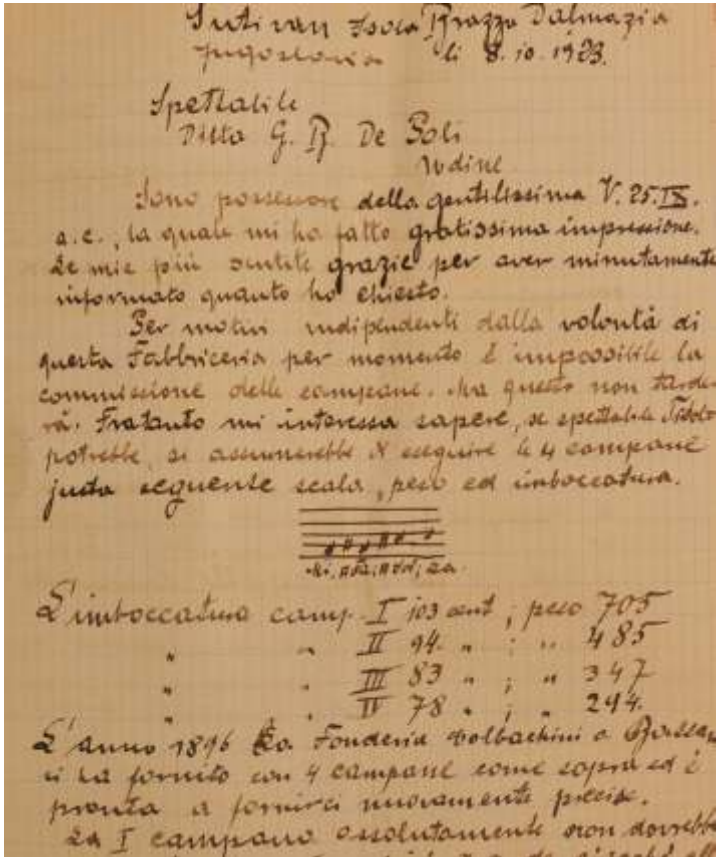 Sutivan Isola Brazza Dalmazia
Jugoslavia li 8. 10. 1923.
Spettabile
Ditta G. B. De Poli
Udine
Sono possessore della gentilissima V. 25. IX.
a.c., la quale mi ha fatto gratissima impressione.
Le mie più sentite grazie per aver minutamente
informato quanto ho chiesto.
Per motivi indipendenti dalla volontá di
questa Fabbriceria per momento é impossibile la
commissione delle campane. Ma questo non tarde-
rá. Fratanto mi interessa sapere, se spettabile
potrebbe, si assumerebbe eseguire le 4 campane
justa seguense scala, peso ed imboccatura.
Mi, #fa, #sol, La
L'imboccatura camp. I 103 cent ; peso 705
" " II 94 " ; " 485
" " III 83 " ; " 347
" " IV 78 " ; " 294.
L'anno 1896 La Fonderia Colbachini a Bassan
ci ha fornito con 4 campane come sopra ed é
pronta a fornirci nuovamente precise.
La I campana assolutamente non dovrebbe